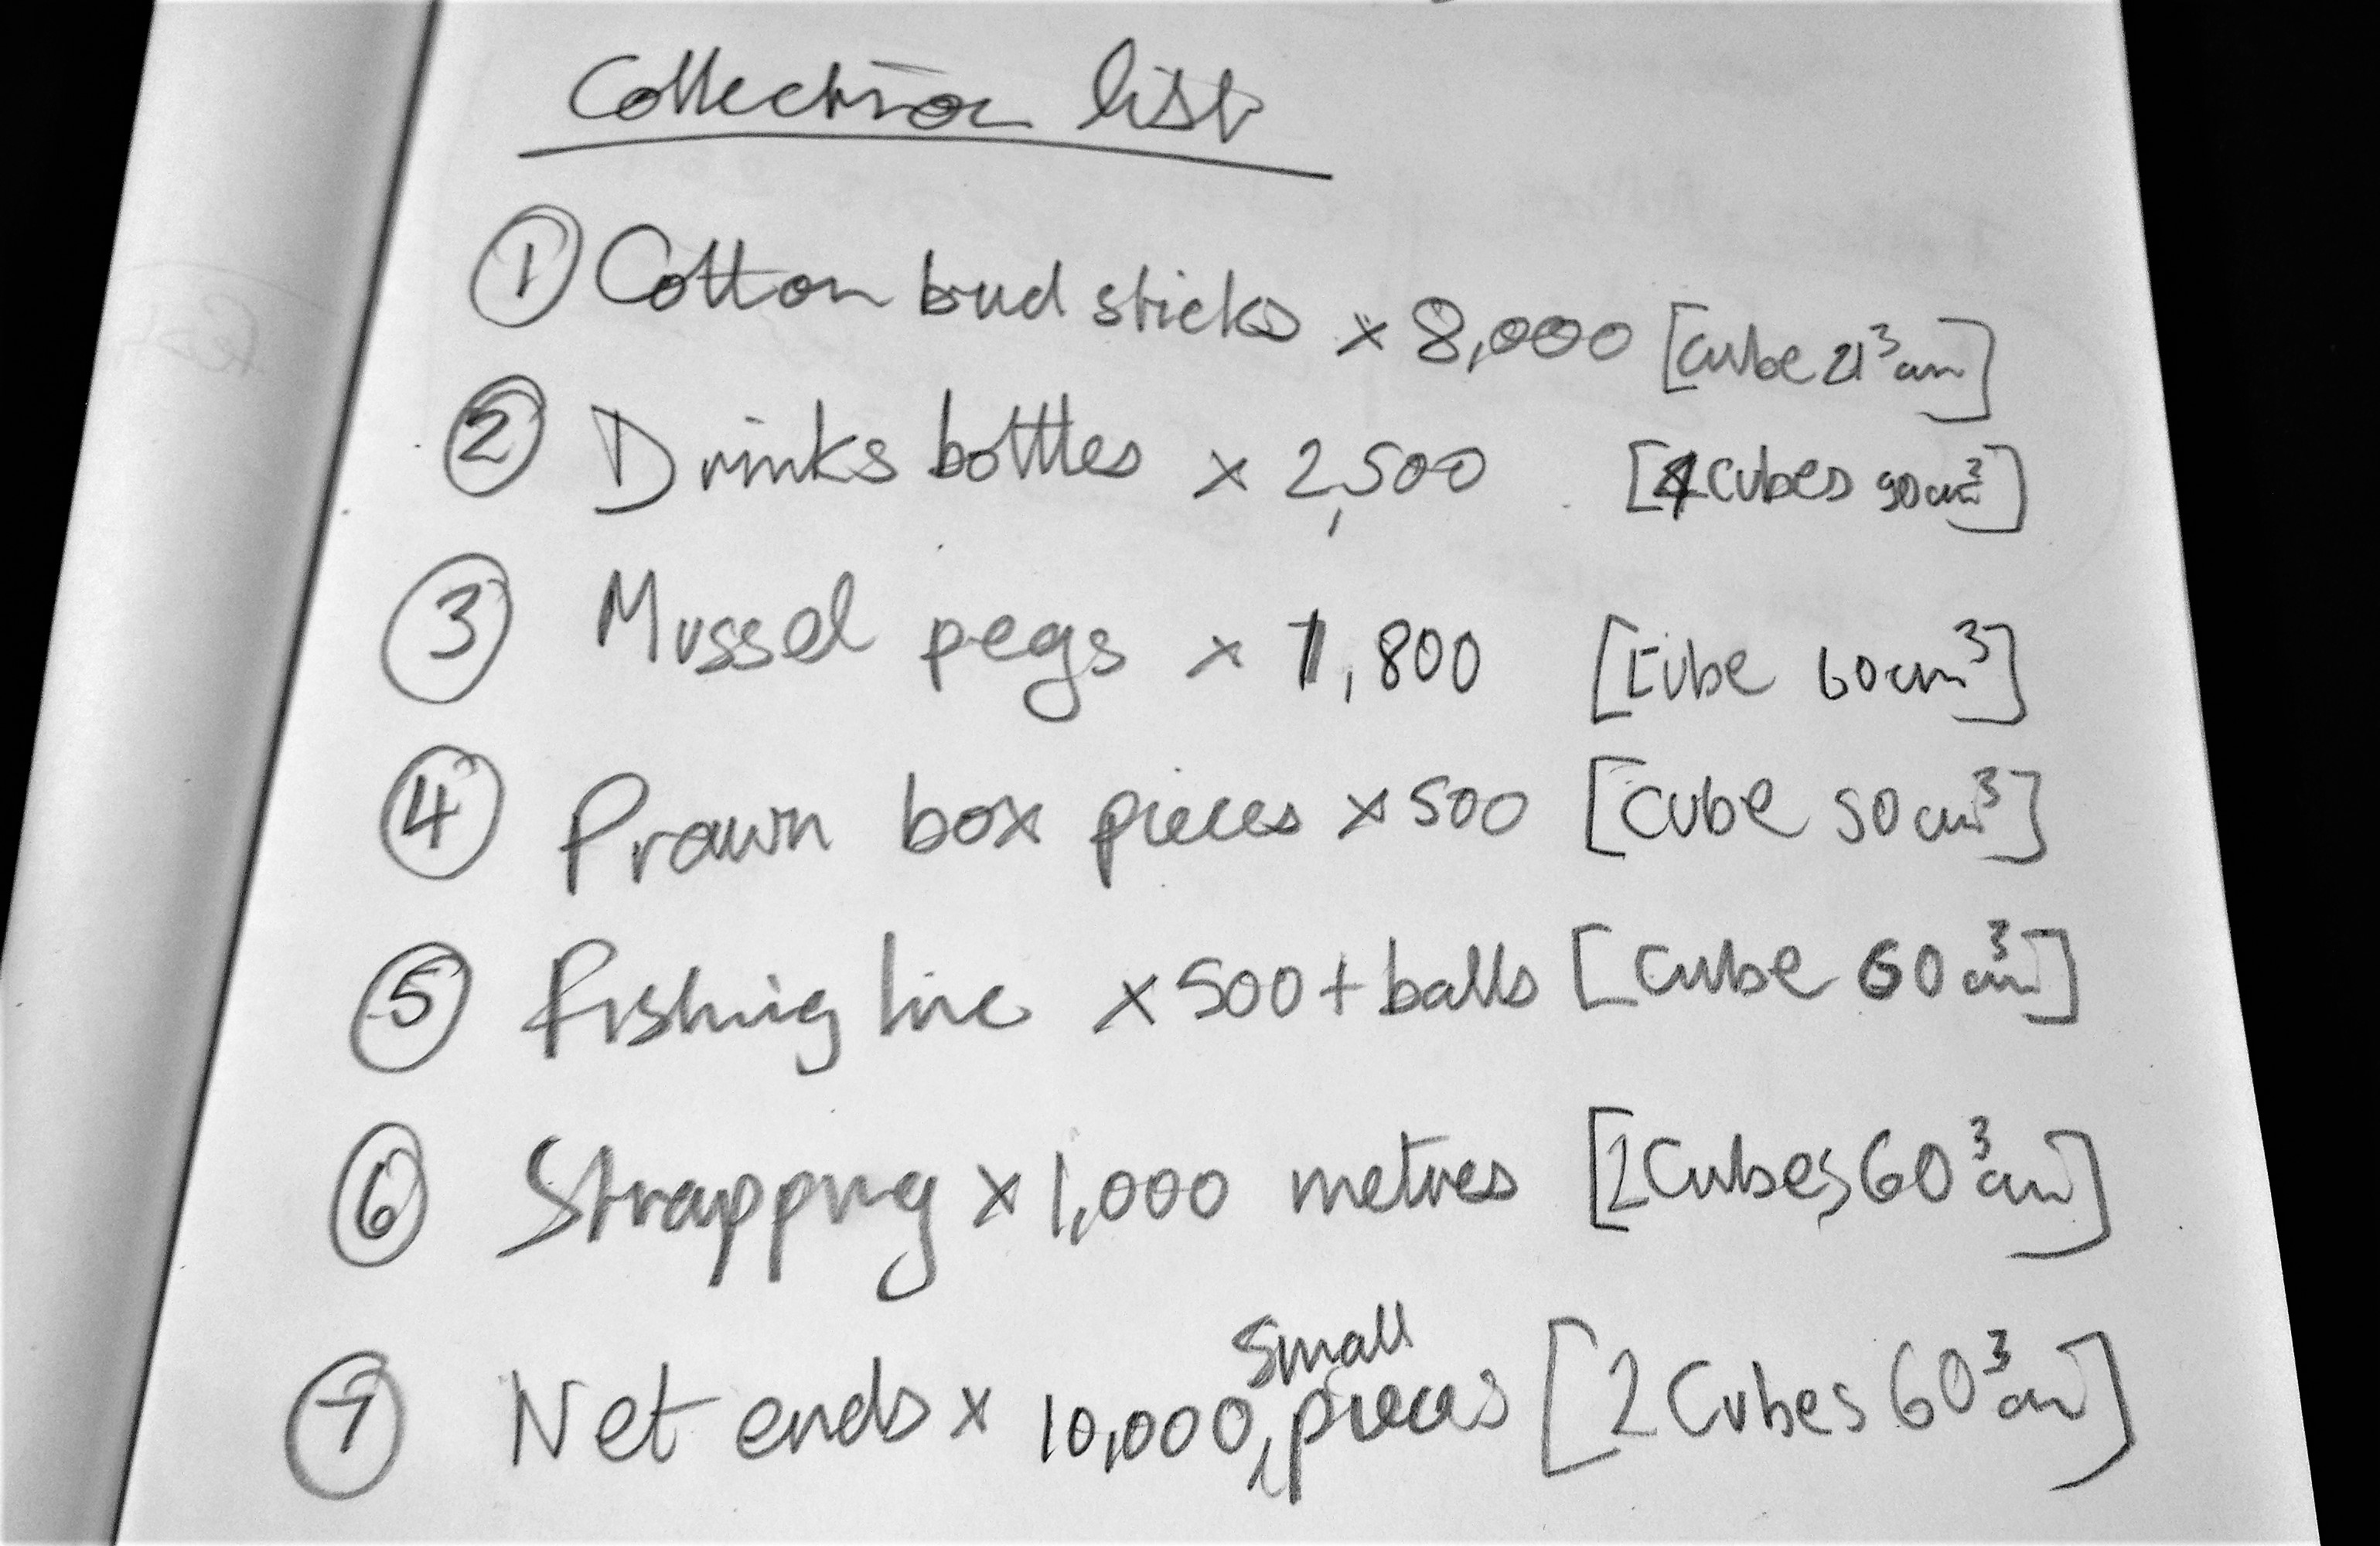 Collection list
① Cotton bud sticks x 8,000 [Cube 21³cm]
② Drinks bottles x 2,500 [4 Cubes 90cm³]
③ Mussel pegs x 1,800 [Cube 60cm³]
④ Prawn box pieces x 500 [Cube 50cm³]
⑤ Fishing line x 500 + balls [Cube 60³cm]
⑥ Strapping x 1,000 metres [2 Cubes 60³cm]
⑦ Net ends x 10,000 small pieces [2 Cubes 60³cm]